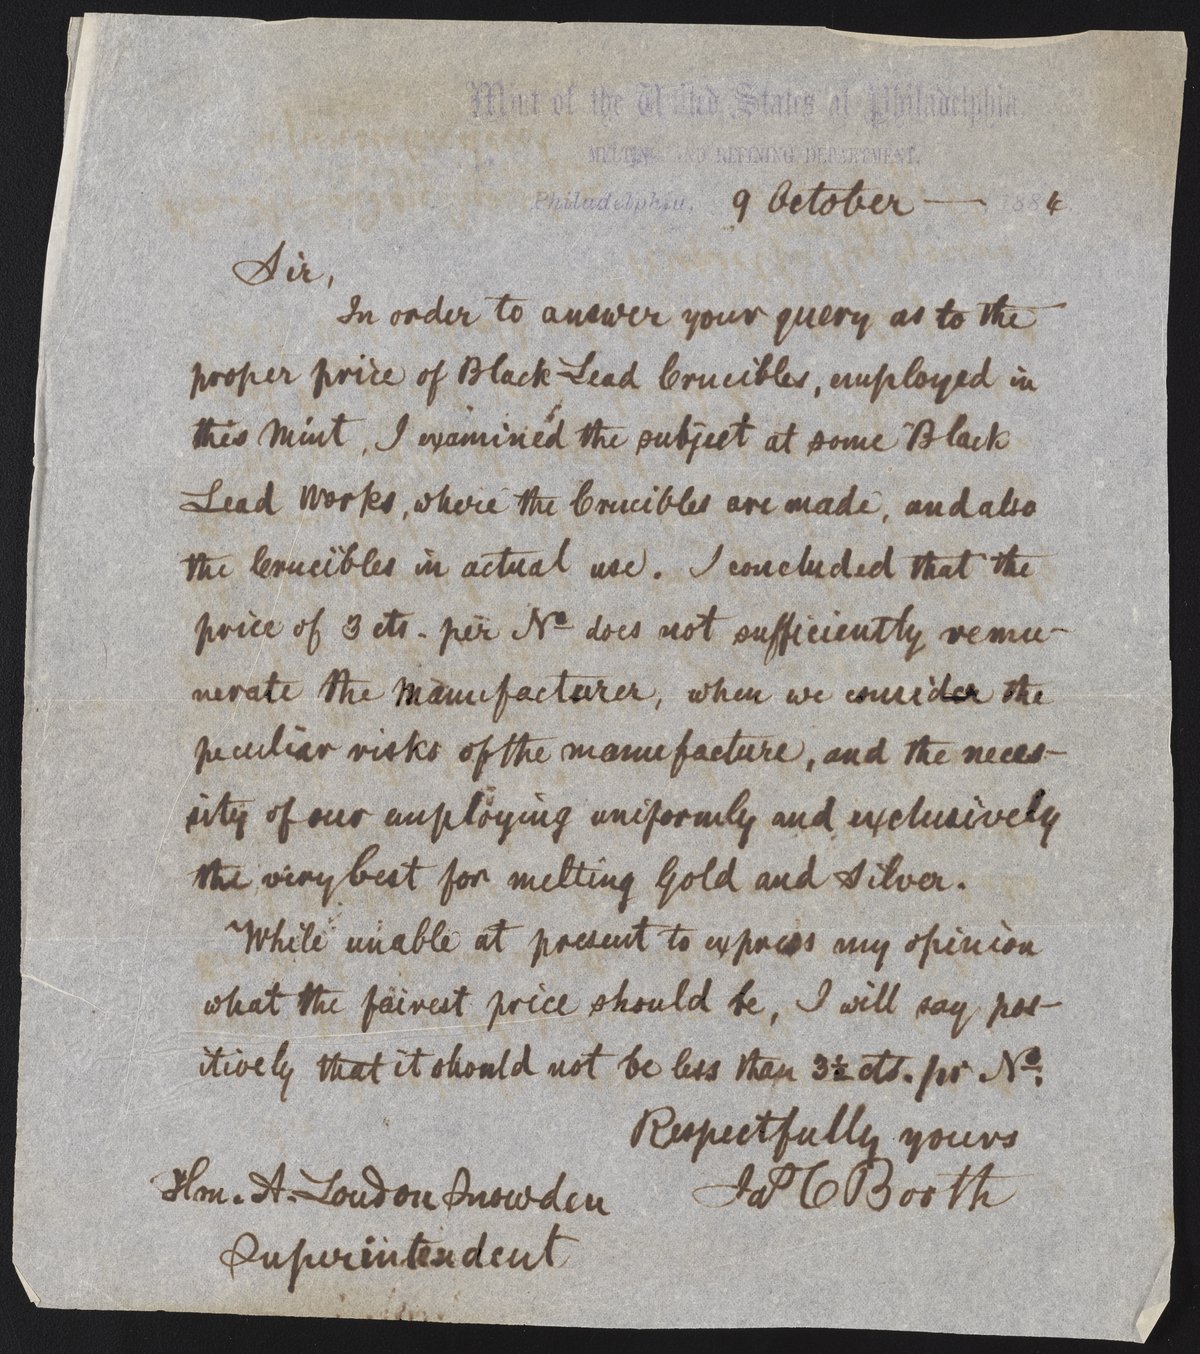 Mint of the United States at Philadelphia
MELTING AND REFINING DEPARTMENT.
Philadelphia, 9 October — , 1884
Sir,
In order to answer your query as to the
proper price of Black-Lead Crucibles, employed in
this Mint, I examined the subject at some Black
Lead Works, where the Crucibles are made, and also
the Crucibles in actual use. I concluded that the
price of 3 cts. per No does not sufficiently remu-
nerate the Manufacturer, when we consider the
peculiar risks of the manufacture, and the neces-
sity of our employing uniformly and exclusively
the very best for melting Gold and Silver.
While unable at present to express my opinion
what the fairest price should be, I will say pos-
itively that it should not be less than 3½ cts. pr No.
Respectfully yours
Jas C Booth
Hon. A. Loudon Snowden
Superintendent